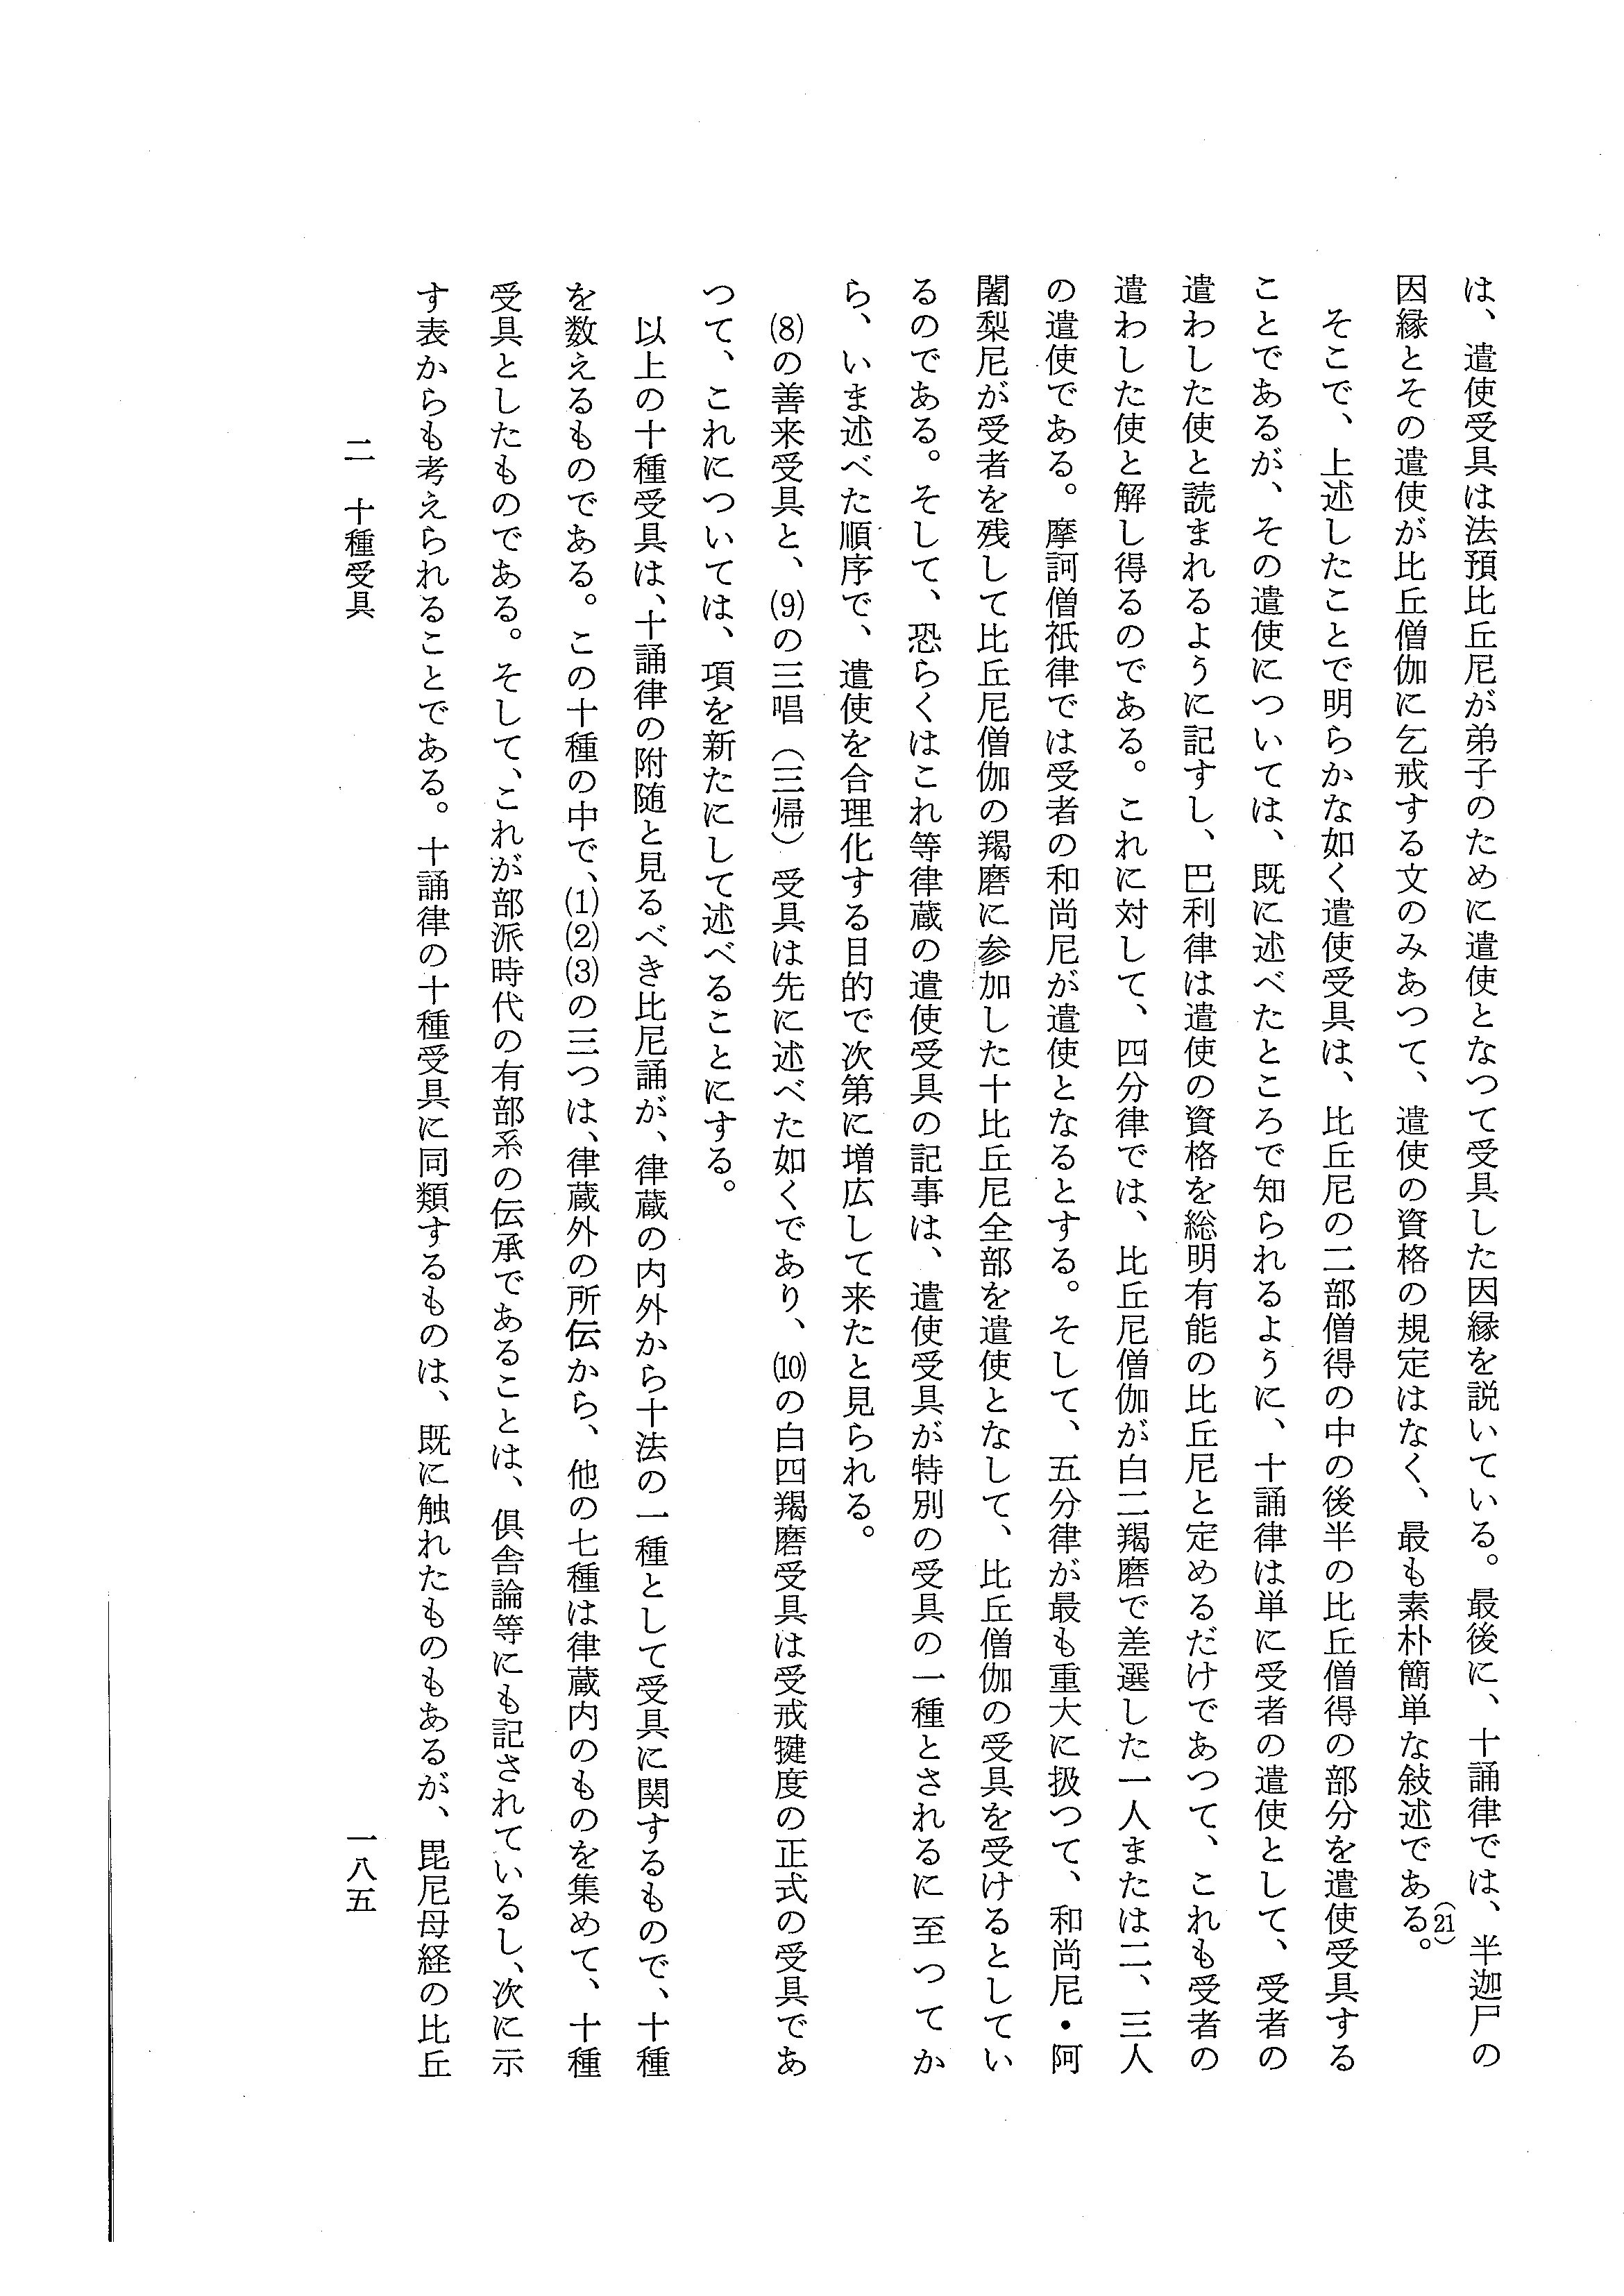 は、遣使受具は法預比丘尼が弟子のために遣使となつて受具した因縁を説いている。最後に、十誦律では、半迦尸の
因縁とその遣使が比丘僧伽に乞戒する文のみあつて、遣使の資格の規定はなく、最も素朴簡単な敍述である。(21)
そこで、上述したことで明らかな如く遣使受具は、比丘尼の二部僧得の中の後半の比丘僧得の部分を遣使受具する
ことであるが、その遣使については、既に述べたところで知られるように、十誦律は単に受者の遣使として、受者の
遣わした使と読まれるように記すし、巴利律は遣使の資格を総明有能の比丘尼と定めるだけであつて、これも受者の
遣わした使と解し得るのである。これに対して、四分律では、比丘尼僧伽が白二羯磨で差選した一人または二、三人
の遣使である。摩訶僧祇律では受者の和尚尼が遣使となるとする。そして、五分律が最も重大に扱つて、和尚尼・阿
闍梨尼が受者を残して比丘尼僧伽の羯磨に参加した十比丘尼全部を遣使となして、比丘僧伽の受具を受けるとしてい
るのである。そして、恐らくはこれ等律蔵の遣使受具の記事は、遣使受具が特別の受具の一種とされるに至つてか
ら、いま述べた順序で、遣使を合理化する目的で次第に増広して来たと見られる。
(8)の善来受具と、(9)の三唱（三帰）受具は先に述べた如くであり、(10)の白四羯磨受具は受戒犍度の正式の受具であ
つて、これについては、項を新たにして述べることにする。
以上の十種受具は、十誦律の附随と見るべき比尼誦が、律蔵の内外から十法の一種として受具に関するもので、十種
を数えるものである。この十種の中で、(1)(2)(3)の三つは、律蔵外の所伝から、他の七種は律蔵内のものを集めて、十種
受具としたものである。そして、これが部派時代の有部系の伝承であることは、倶舎論等にも記されているし、次に示
す表からも考えられることである。十誦律の十種受具に同類するものは、既に触れたものもあるが、毘尼母経の比丘
二　十種受具
一八五